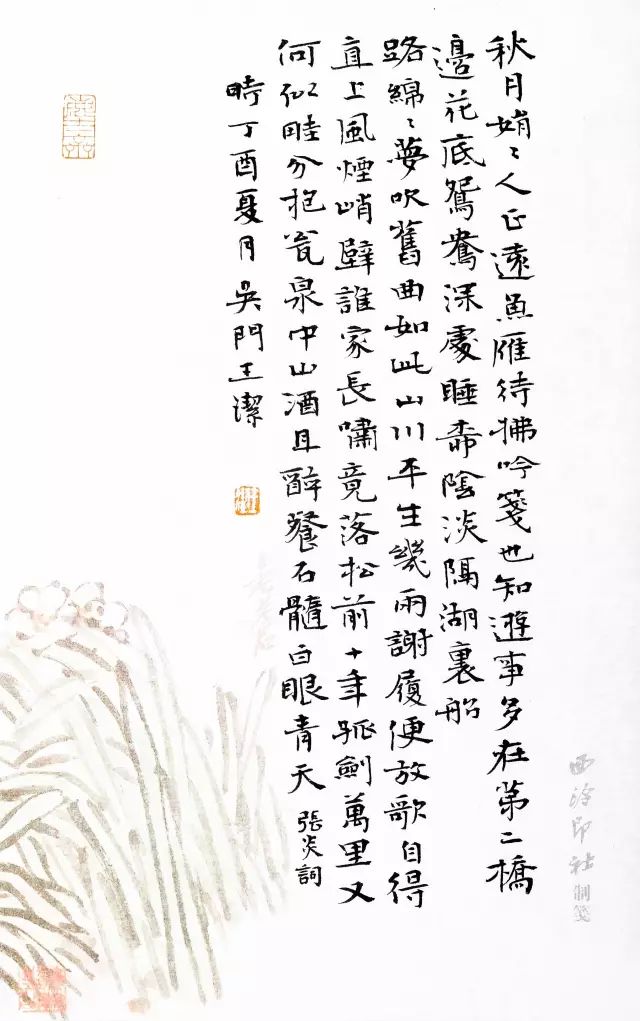 秋月娟〻人正遠魚雁待拂吟箋也知遊事多在第二橋
邊花底鴛鴦深處睡柳陰淡隔湖裏船
路綿〻夢吹舊曲如此山川平生幾兩謝屐便放歌自得
直上風煙峭壁誰家長嘯竟落松前十年孤劍萬里又
何似畦分抱瓮泉中山酒且醉餐石髓白眼青天
張炎詞
時丁酉夏月吳門王潔
西泠印社制箋